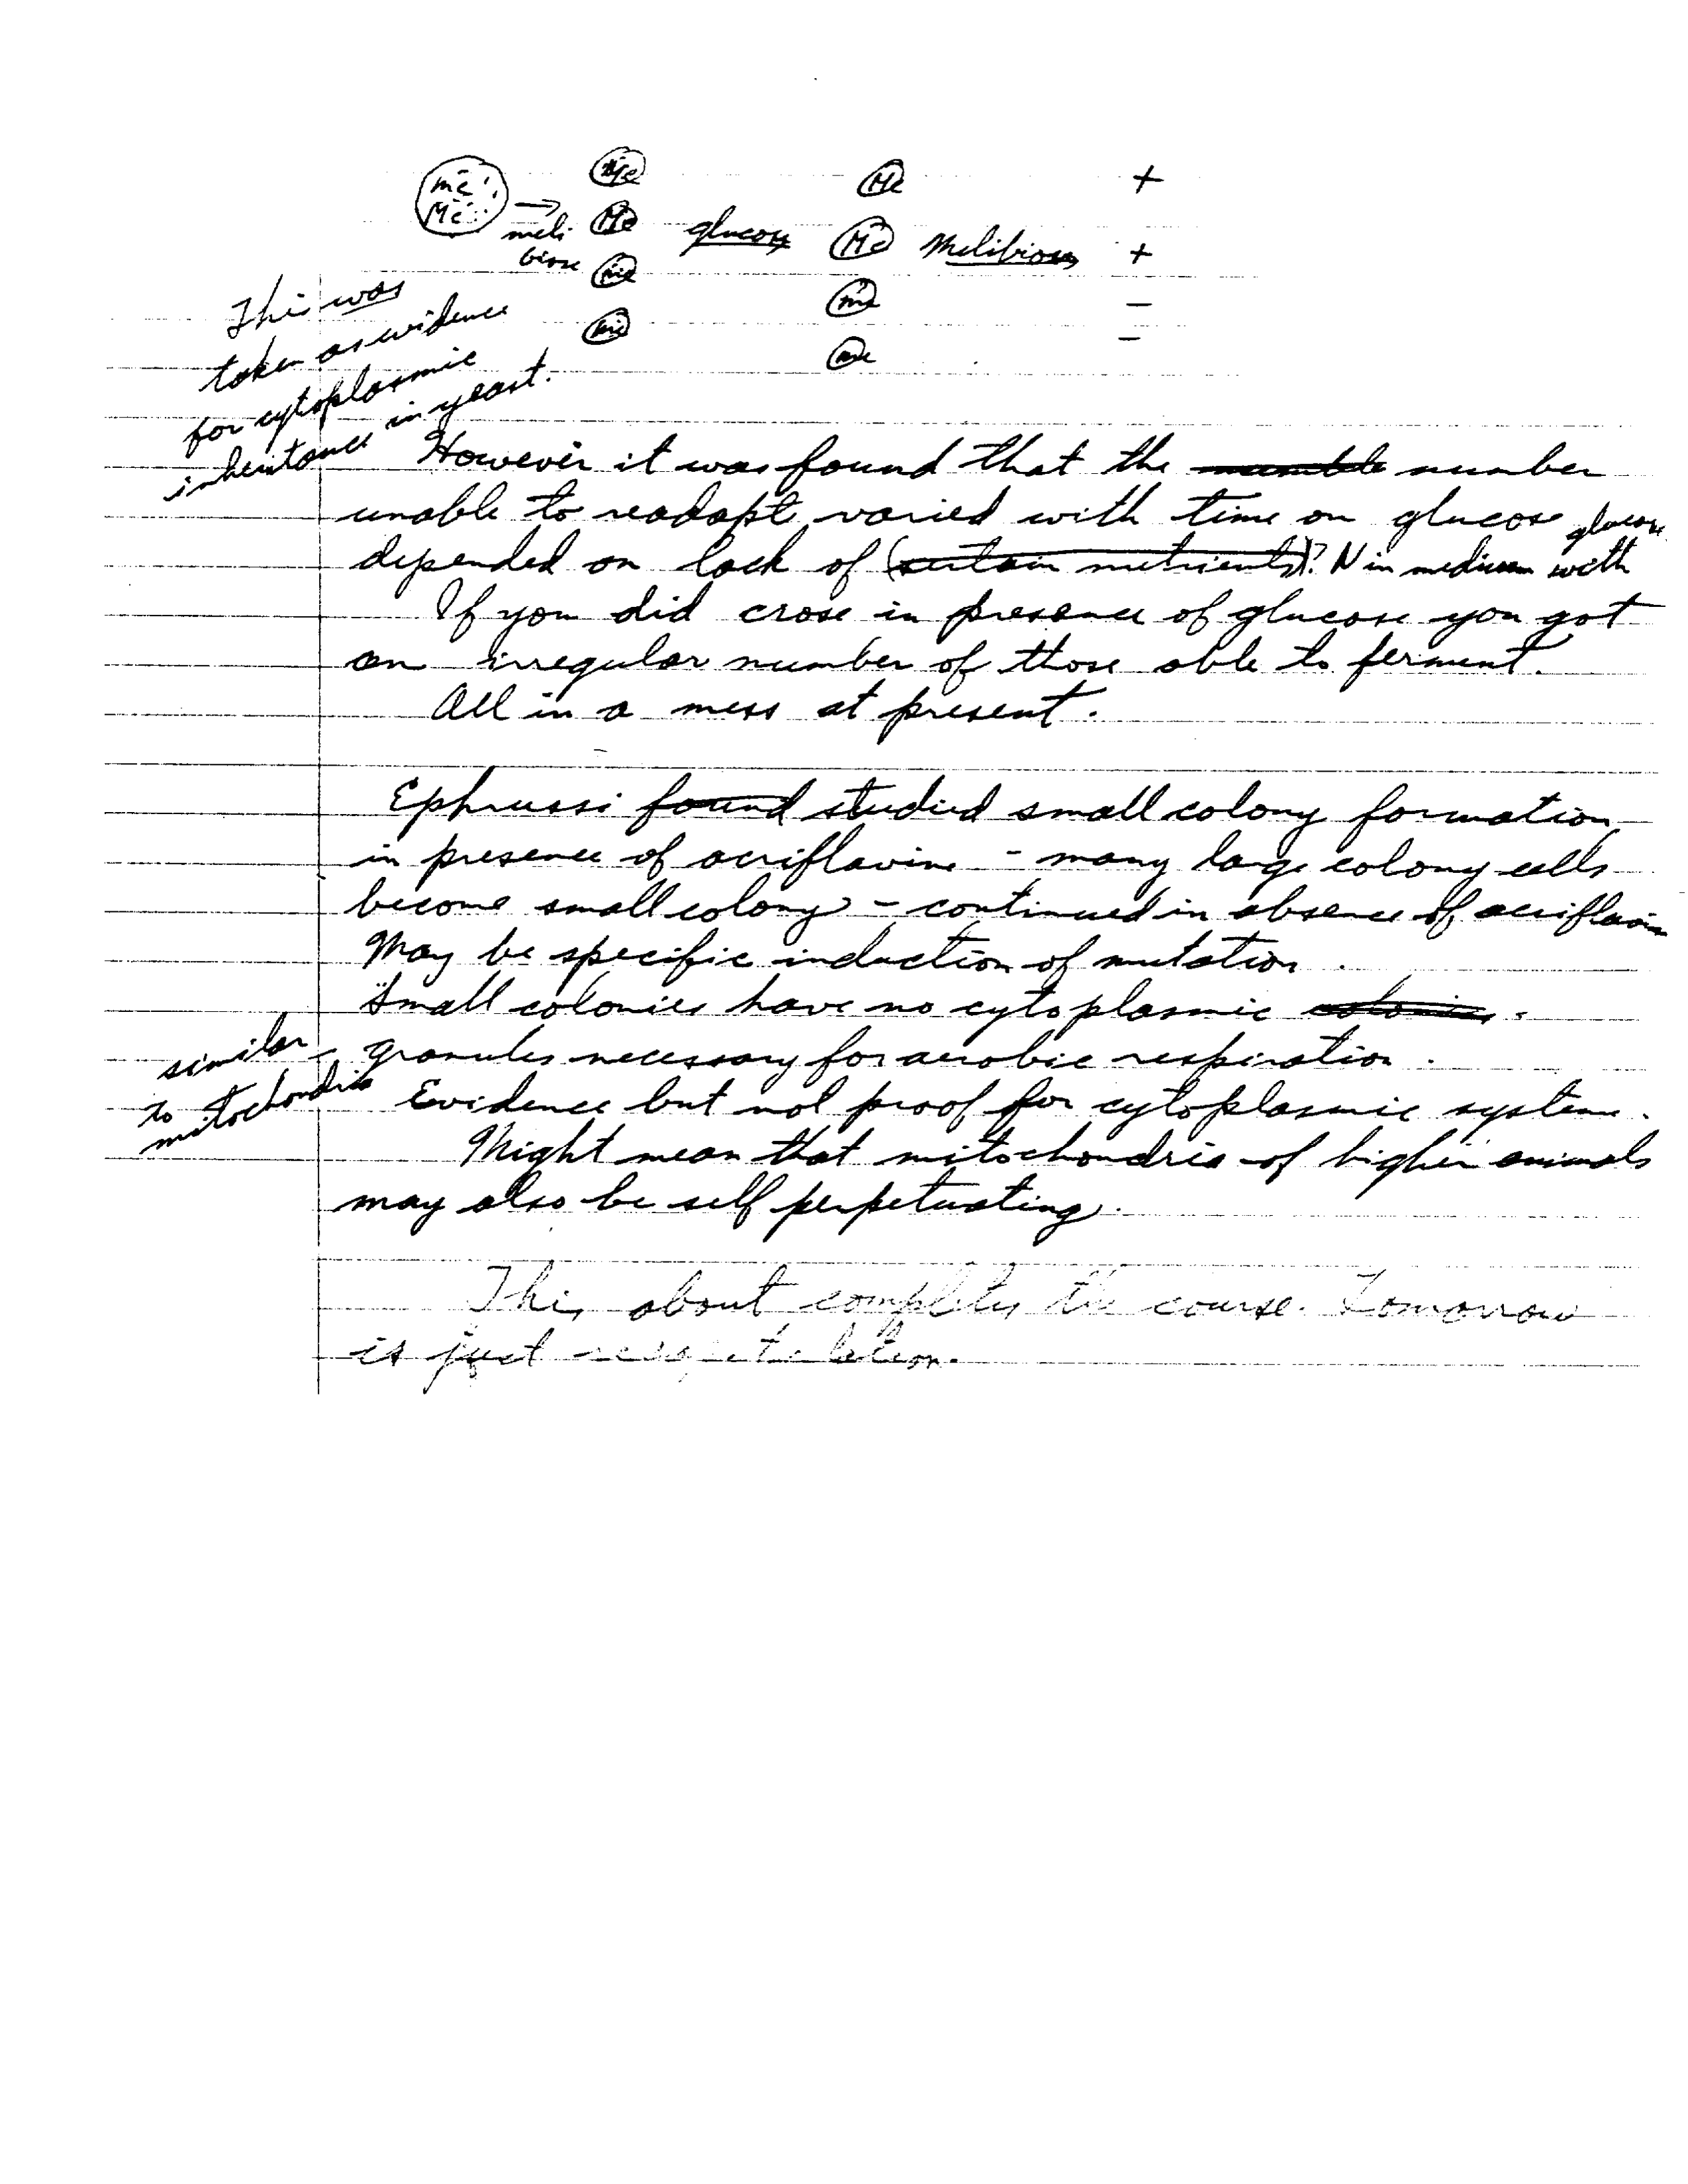 me Me → melibiose
Me glucose Me Melibiose +
Me Me +
me me −
me me −
This was
taken as evidence
for cytoplasmic
inheritance in yeast.
However it was found that the number
unable to readapt varied with time on glucose
depended on lack of (certain nutrients)? N in medium with glucose
If you did cross in presence of glucose you got
an irregular number of those able to ferment.
All in a mess at present.
Ephrussi found studied small colony formation
in presence of acriflavine - many large colony cells
become small colony - continued in absence of acriflavin
May be specific induction of mutation.
Small colonies have no cytoplasmic colonies.
granules necessary for aerobic respiration.
similar
to mitochondria
mitochondria
Evidence but not proof for cytoplasmic system.
Might mean that mitochondria of higher animals
may also be self perpetuating.
This about completes the course. Tomorrow
is just recapitulation.